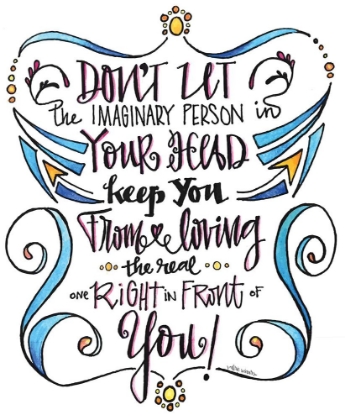 DON'T LET
the IMAGINARY PERSON in
YOUR HEAD
keep You
From loving
the real
ONE RIGHT IN FRONT OF
You!